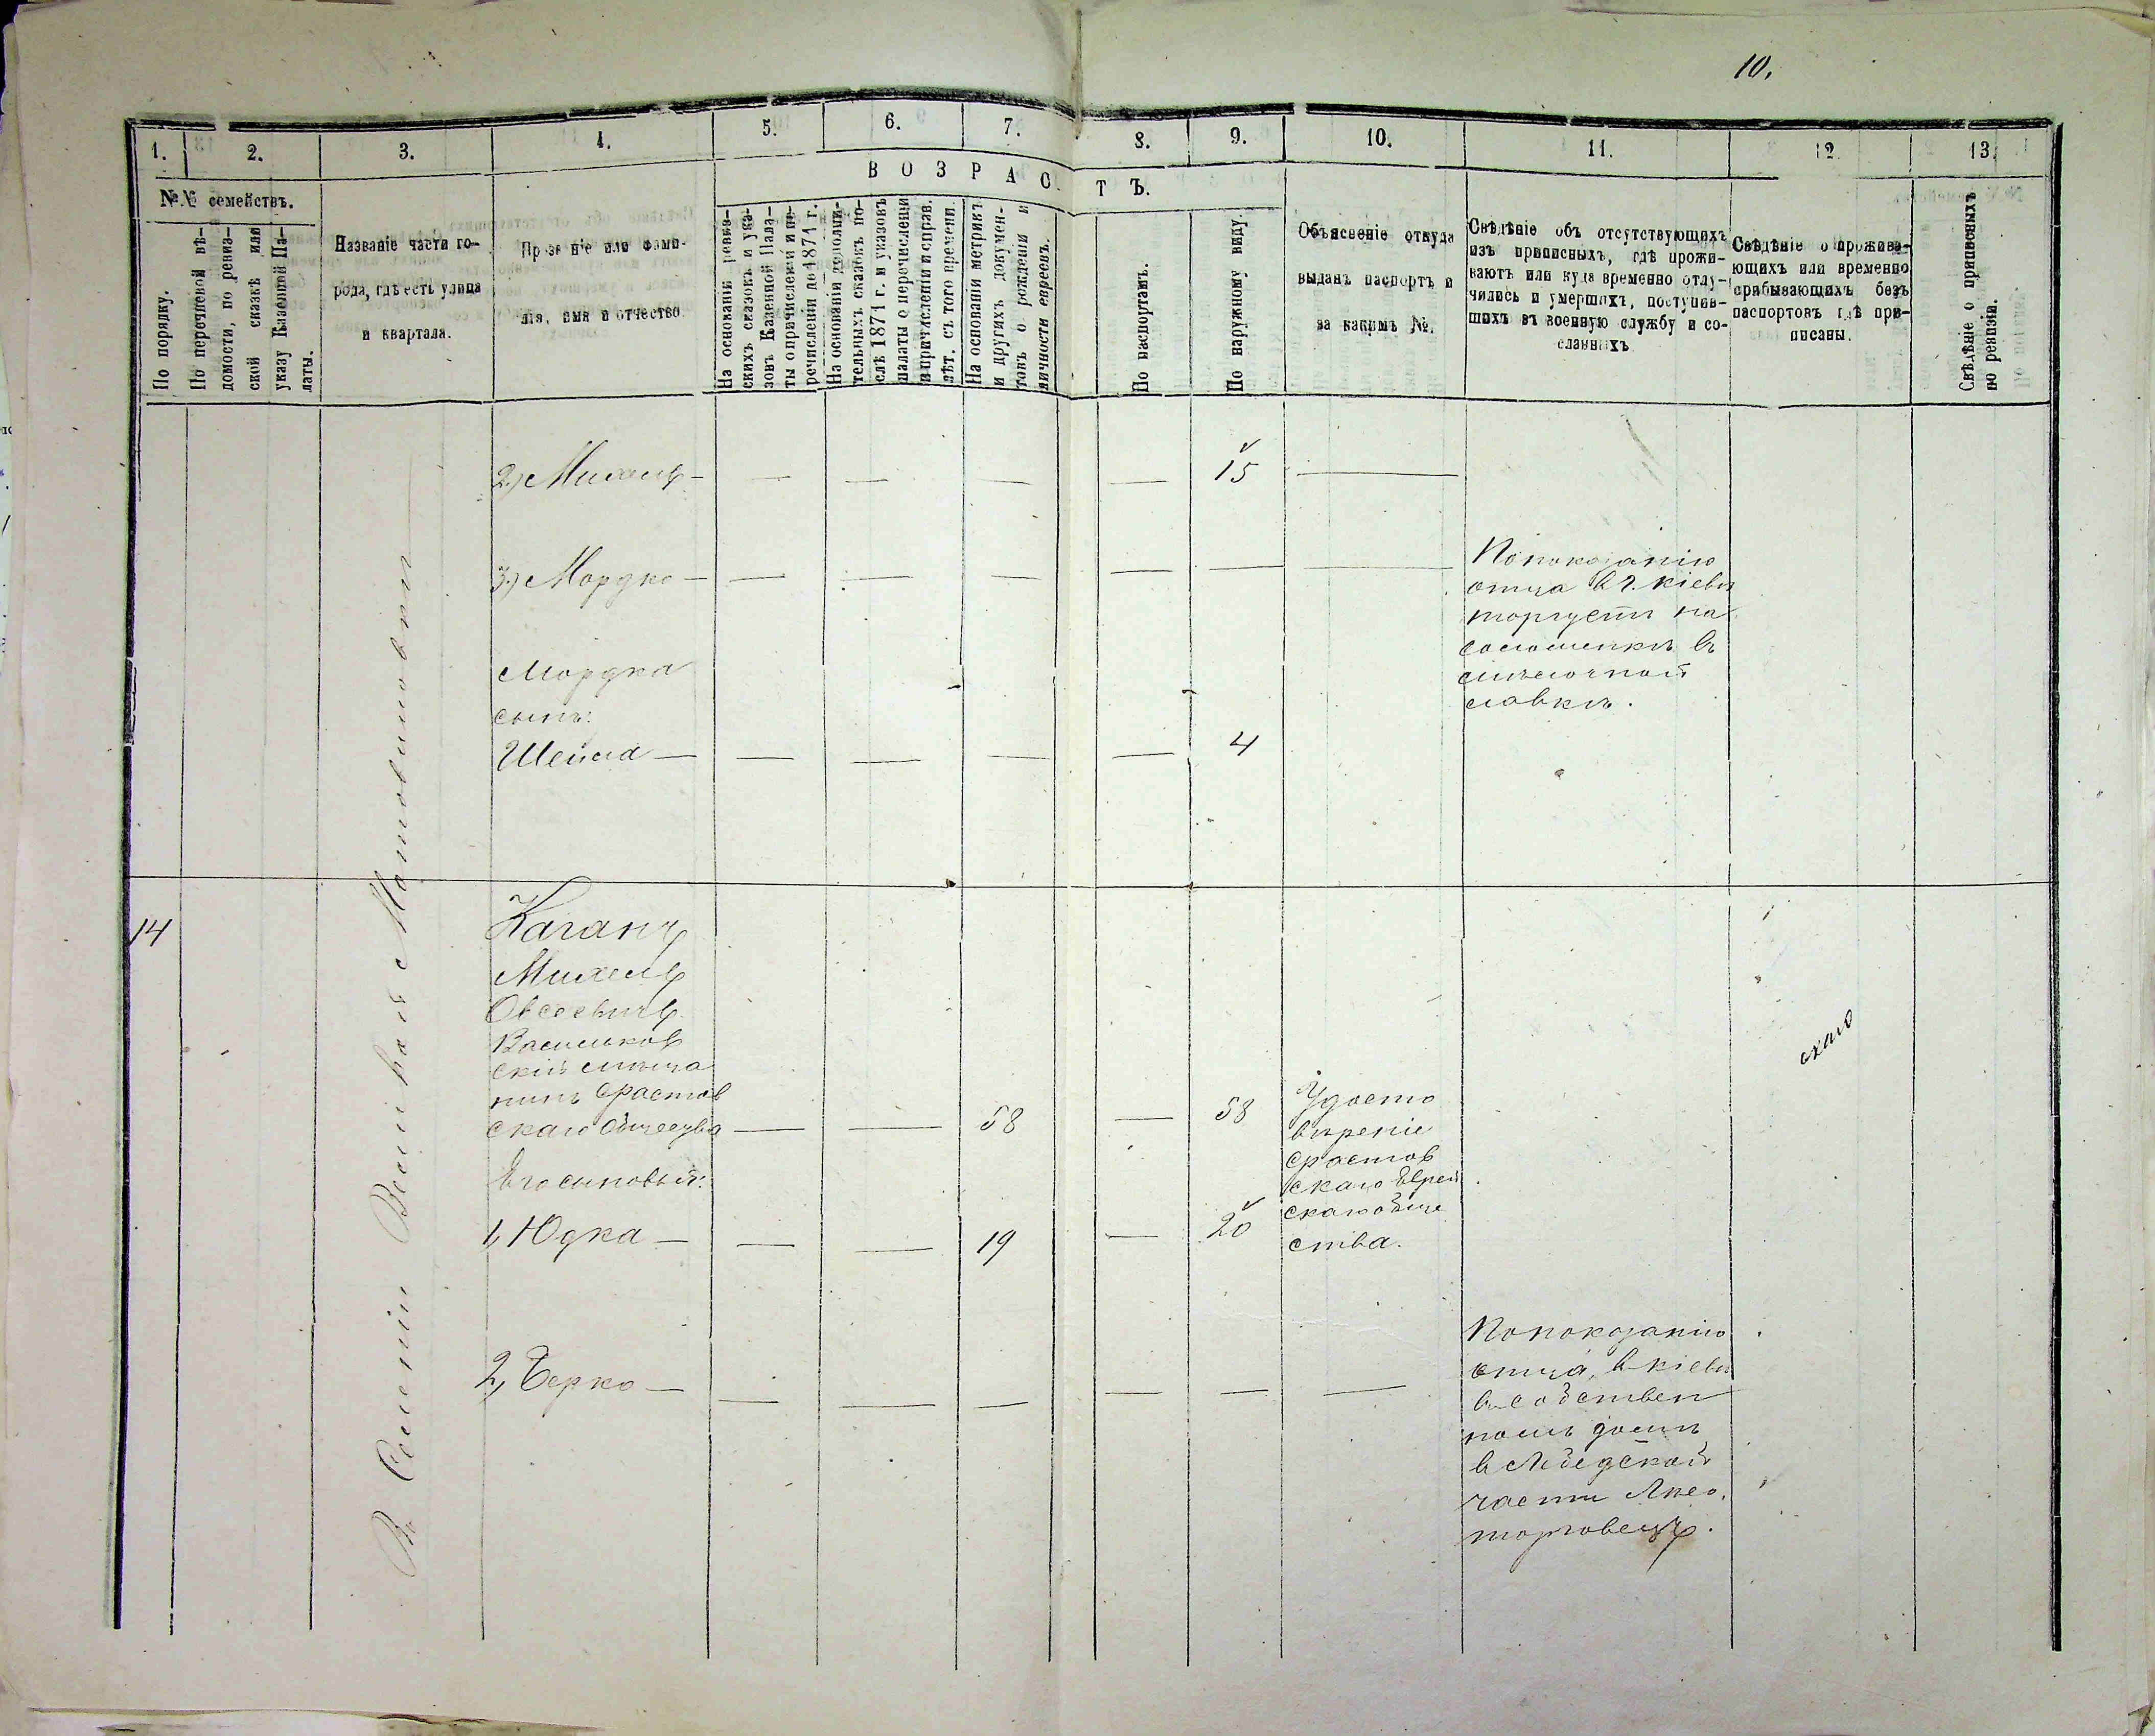 10.
1. 2. 3. 4. 5. 6. 7. 8. 9. 10. 11. 12. 13.
ВОЗРАСТЪ.
№№ семействъ.
По порядку.
По перечневой вѣ-
домости, по ревиз-
ской сказкѣ или
указу Казенной Па-
латы.
Названіе части го-
рода, гдѣ есть улица
и квартала.
Прозваніе или фами-
лія, имя и отчество.
На основаніи ревиз-
скихъ сказокъ и ука-
зовъ Казенной Пала-
ты о причисленіи и пе-
речисленіи до 1871 г.
На основаніи дополни-
тельныхъ сказокъ по-
слѣ 1871 г. и указовъ
палаты о перечисленіи
и причисленіи и справ.
лѣт. съ того времени.
На основаніи метрикъ
и другихъ докумен-
товъ о рожденіи и
личности евреевъ.
По паспортамъ.
По наружному виду.
Объясненіе откуда
выданъ паспортъ и
за какимъ №.
Свѣдѣніе объ отсутствующихъ
изъ приписныхъ, гдѣ прожи-
ваютъ или куда временно отлу-
чились и умершихъ, поступив-
шихъ въ военную службу и со-
сланныхъ
Свѣдѣніе о прожива-
ющихъ или временно
прибывающихъ безъ
паспортовъ гдѣ при-
писаны.
Свѣдѣніе о приписныхъ
по ревизіи.
2.) Михель — — — — — 15 —
3.) Мордко — — — — — — —
По показанію
отца в г. Кіевѣ
торгуетъ на
Соломенкѣ въ
мѣлочной
лавкѣ.
Мордка
сынъ:
Шейма — — — — — 4
В Селеніи Великой Мотовиловки
14
Каганъ
Михель
Овсеевичъ
Васильков
скій мѣща
нинъ Фастов
скаго Общества — — 58 — 58
Удосто
вѣреніе
Фастов
скаго Еврей
скаго обще
ства.
Его сыновья:
1, Юдка — — — 19 — 20
2, Берко — — — — — — —
По показанію
отца, в Кіевѣ
в собствен
номъ домѣ
в Лыбедской
части
торговецъ.